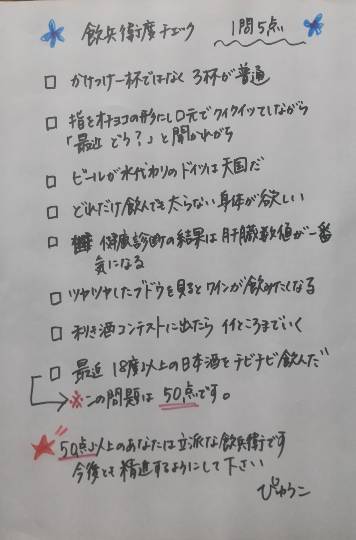 飲兵衛度チェック 1問5点
□ かけつけ一杯ではなく 3杯が普通
□ 指をオチョコの形にし口元でクイクイッてしながら
「最近 どう？」と聞かれがち
□ ビールが水代わりのドイツは天国だ
□ どれだけ飲んでも太らない身体が欲しい
□ 健康診断の結果は肝臓数値が一番
気になる
□ ツヤツヤしたブドウを見るとワインが飲みたくなる
□ 利き酒コンテストに出たら イイところまでいく
□ 最近 18度以上の日本酒をチビチビ飲んだ
※この問題は 50点です。
★50点以上のあなたは立派な飲兵衛です
今後とも精進するようにして下さい
ぴゅうこ